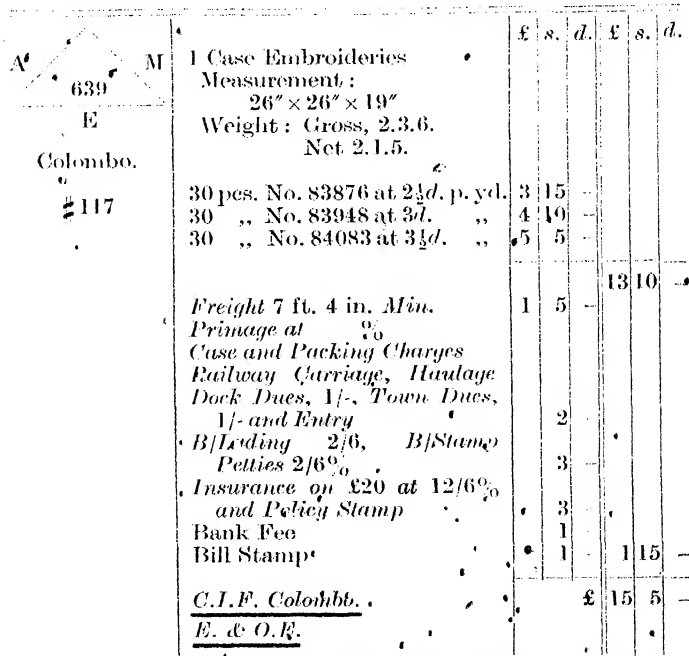 £ s. d. £ s. d.
A M
639
E
Colombo.
#117
1 Case Embroideries
Measurement :
26″ × 26″ × 19″
Weight : Gross, 2.3.6.
Net 2.1.5.
30 pcs. No. 83876 at 2½d. p. yd. 3 15 –
30 „ No. 83948 at 3d. „ 4 10 –
30 „ No. 84083 at 3½d. „ 5 5 –
13 10 –
Freight 7 ft. 4 in. Min. 1 5 –
Primage at %
Case and Packing Charges
Railway Carriage, Haulage
Dock Dues, 1/-, Town Dues,
1/- and Entry 2 –
B/Lading 2/6, B/Stamp
Petties 2/6% 3 –
Insurance on £20 at 12/6%
and Policy Stamp 3 –
Bank Fee 1
Bill Stamp 1 – 1 15 –
C.I.F. Colombo. £ 15 5 –
E. & O.E.